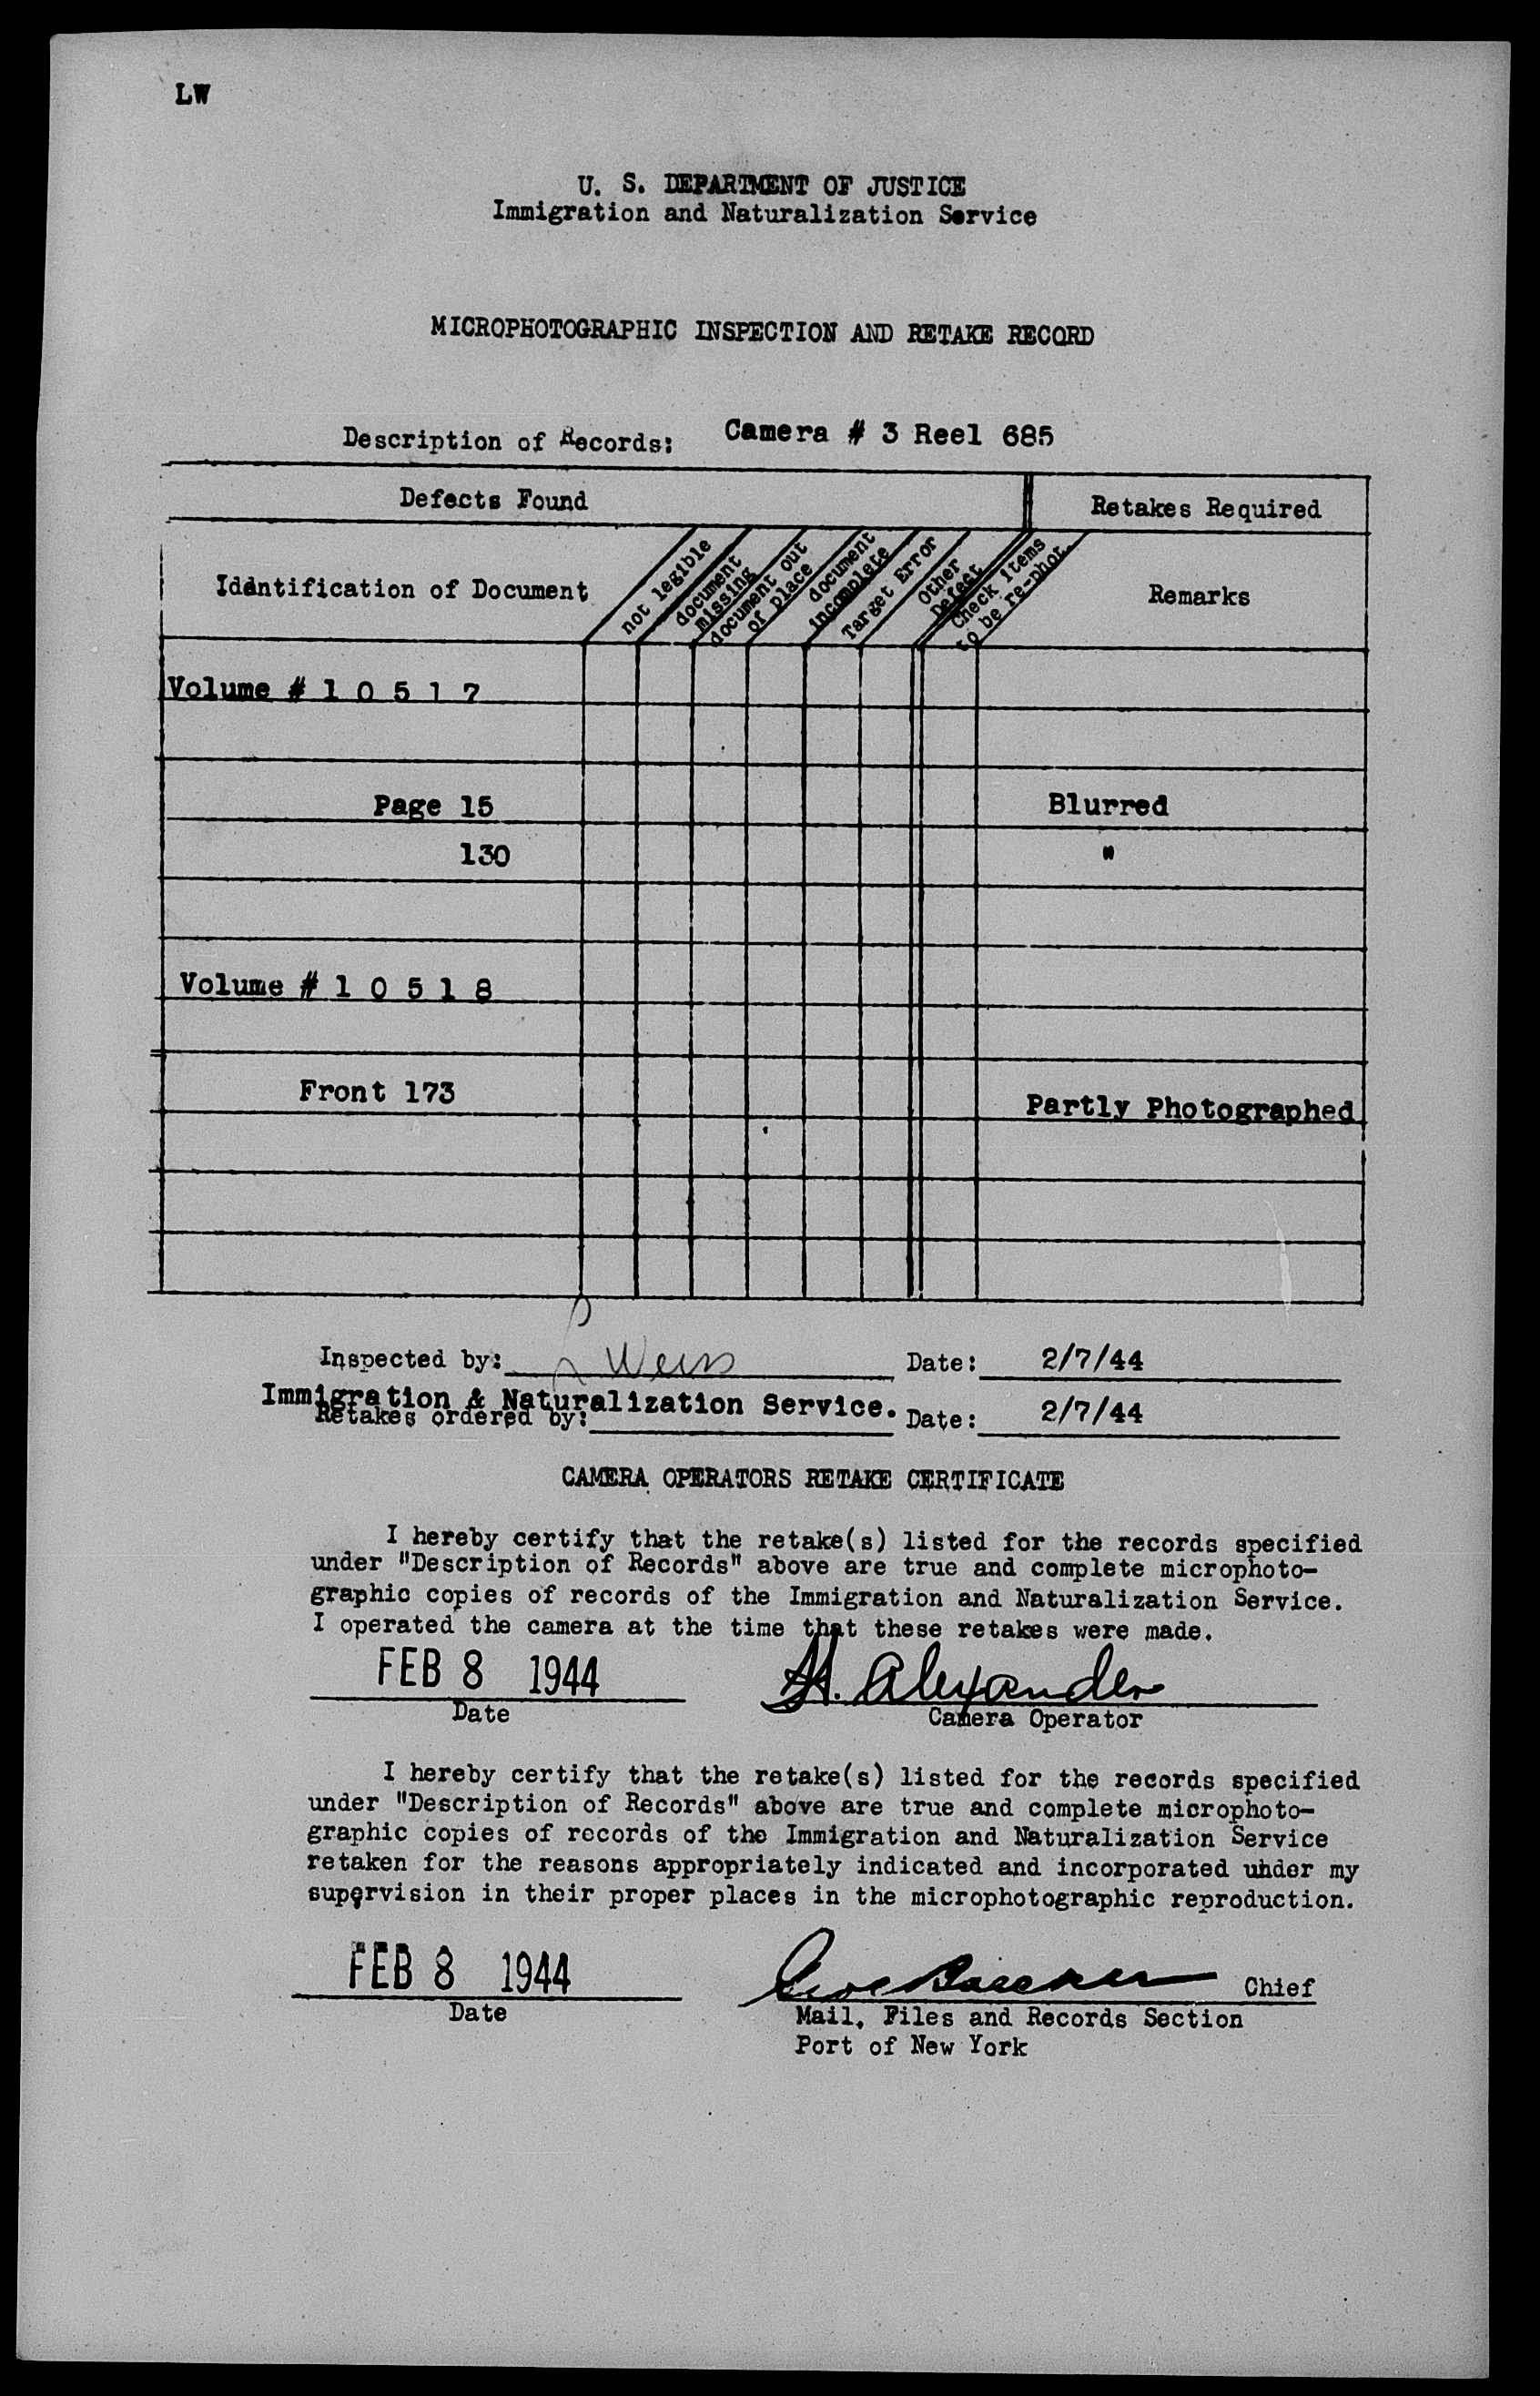 LW
U. S. DEPARTMENT OF JUSTICE
Immigration and Naturalization Service
MICROPHOTOGRAPHIC INSPECTION AND RETAKE RECORD
Description of Records: Camera # 3 Reel 685
Defects Found
Retakes Required
Identification of Document
not legible
document
missing
document out
of place
document
incomplete
Target Error
Other
Defect
Check items
to be re-phot.
Remarks
Volume # 1 0 5 1 7
Page 15 Blurred
130 "
Volume # 1 0 5 1 8
Front 173 Partly Photographed
Inspected by: L Weiss Date: 2/7/44
Immigration & Naturalization Service.
Retakes ordered by: Date: 2/7/44
CAMERA OPERATORS RETAKE CERTIFICATE
I hereby certify that the retake(s) listed for the records specified
under "Description of Records" above are true and complete microphoto-
graphic copies of records of the Immigration and Naturalization Service.
I operated the camera at the time that these retakes were made.
FEB 8 1944 H. Alexander
Date Camera Operator
I hereby certify that the retake(s) listed for the records specified
under "Description of Records" above are true and complete microphoto-
graphic copies of records of the Immigration and Naturalization Service
retaken for the reasons appropriately indicated and incorporated under my
supervision in their proper places in the microphotographic reproduction.
FEB 8 1944 Chief
Date Mail, Files and Records Section
Port of New York